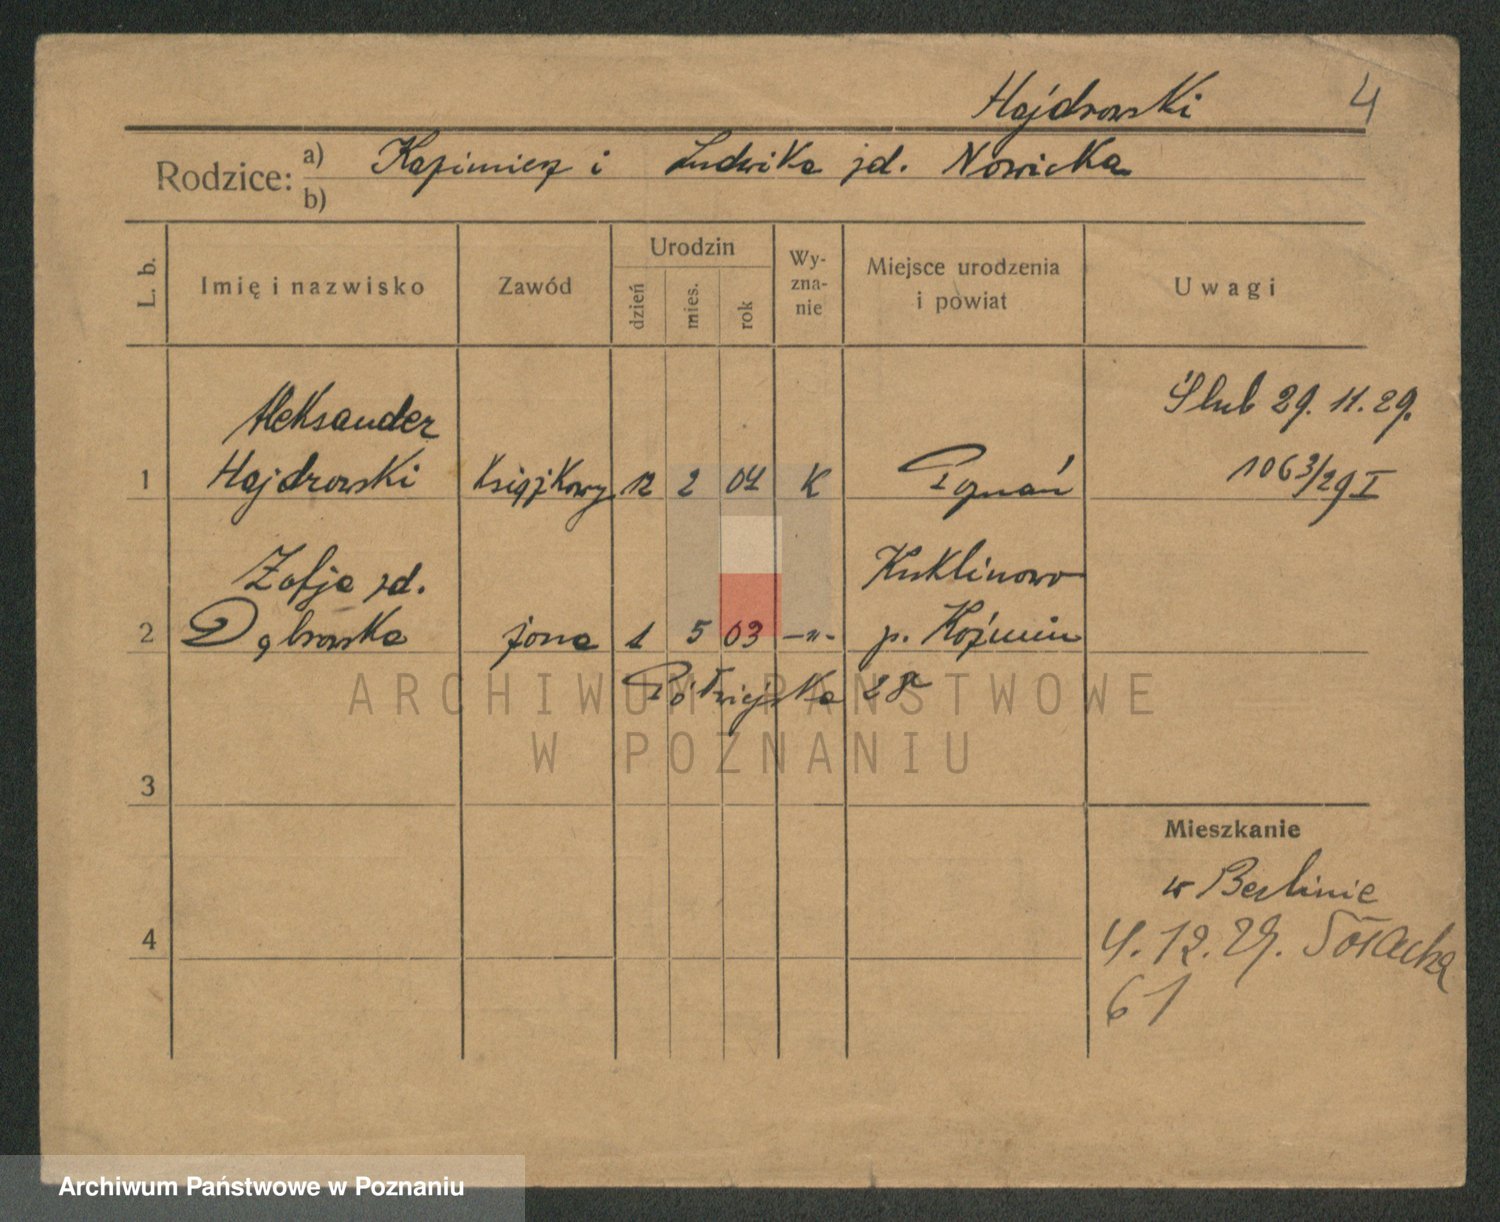 Hajdrowski 4
Rodzice: a) Kazimierz i Ludwika zd. Nowicka
b)
L. b. Imię i nazwisko Zawód Urodzin dzień mies. rok Wy-zna-nie Miejsce urodzenia i powiat Uwagi
Aleksander Ślub 29. 11. 29.
1 Hajdrowski Książkowy 12 2 04 K Poznań 1063/29 I
Zofja zd. Kuklinowo
2 Dąbrowska żona 1 5 03 -"- p. Koźmin
Półwiejska
ARCHIWUM PAŃSTWOWE
W POZNANIU
3
Mieszkanie
w Berlinie
4 4. 12. 29. Sołacka
61
Archiwum Państwowe w Poznaniu